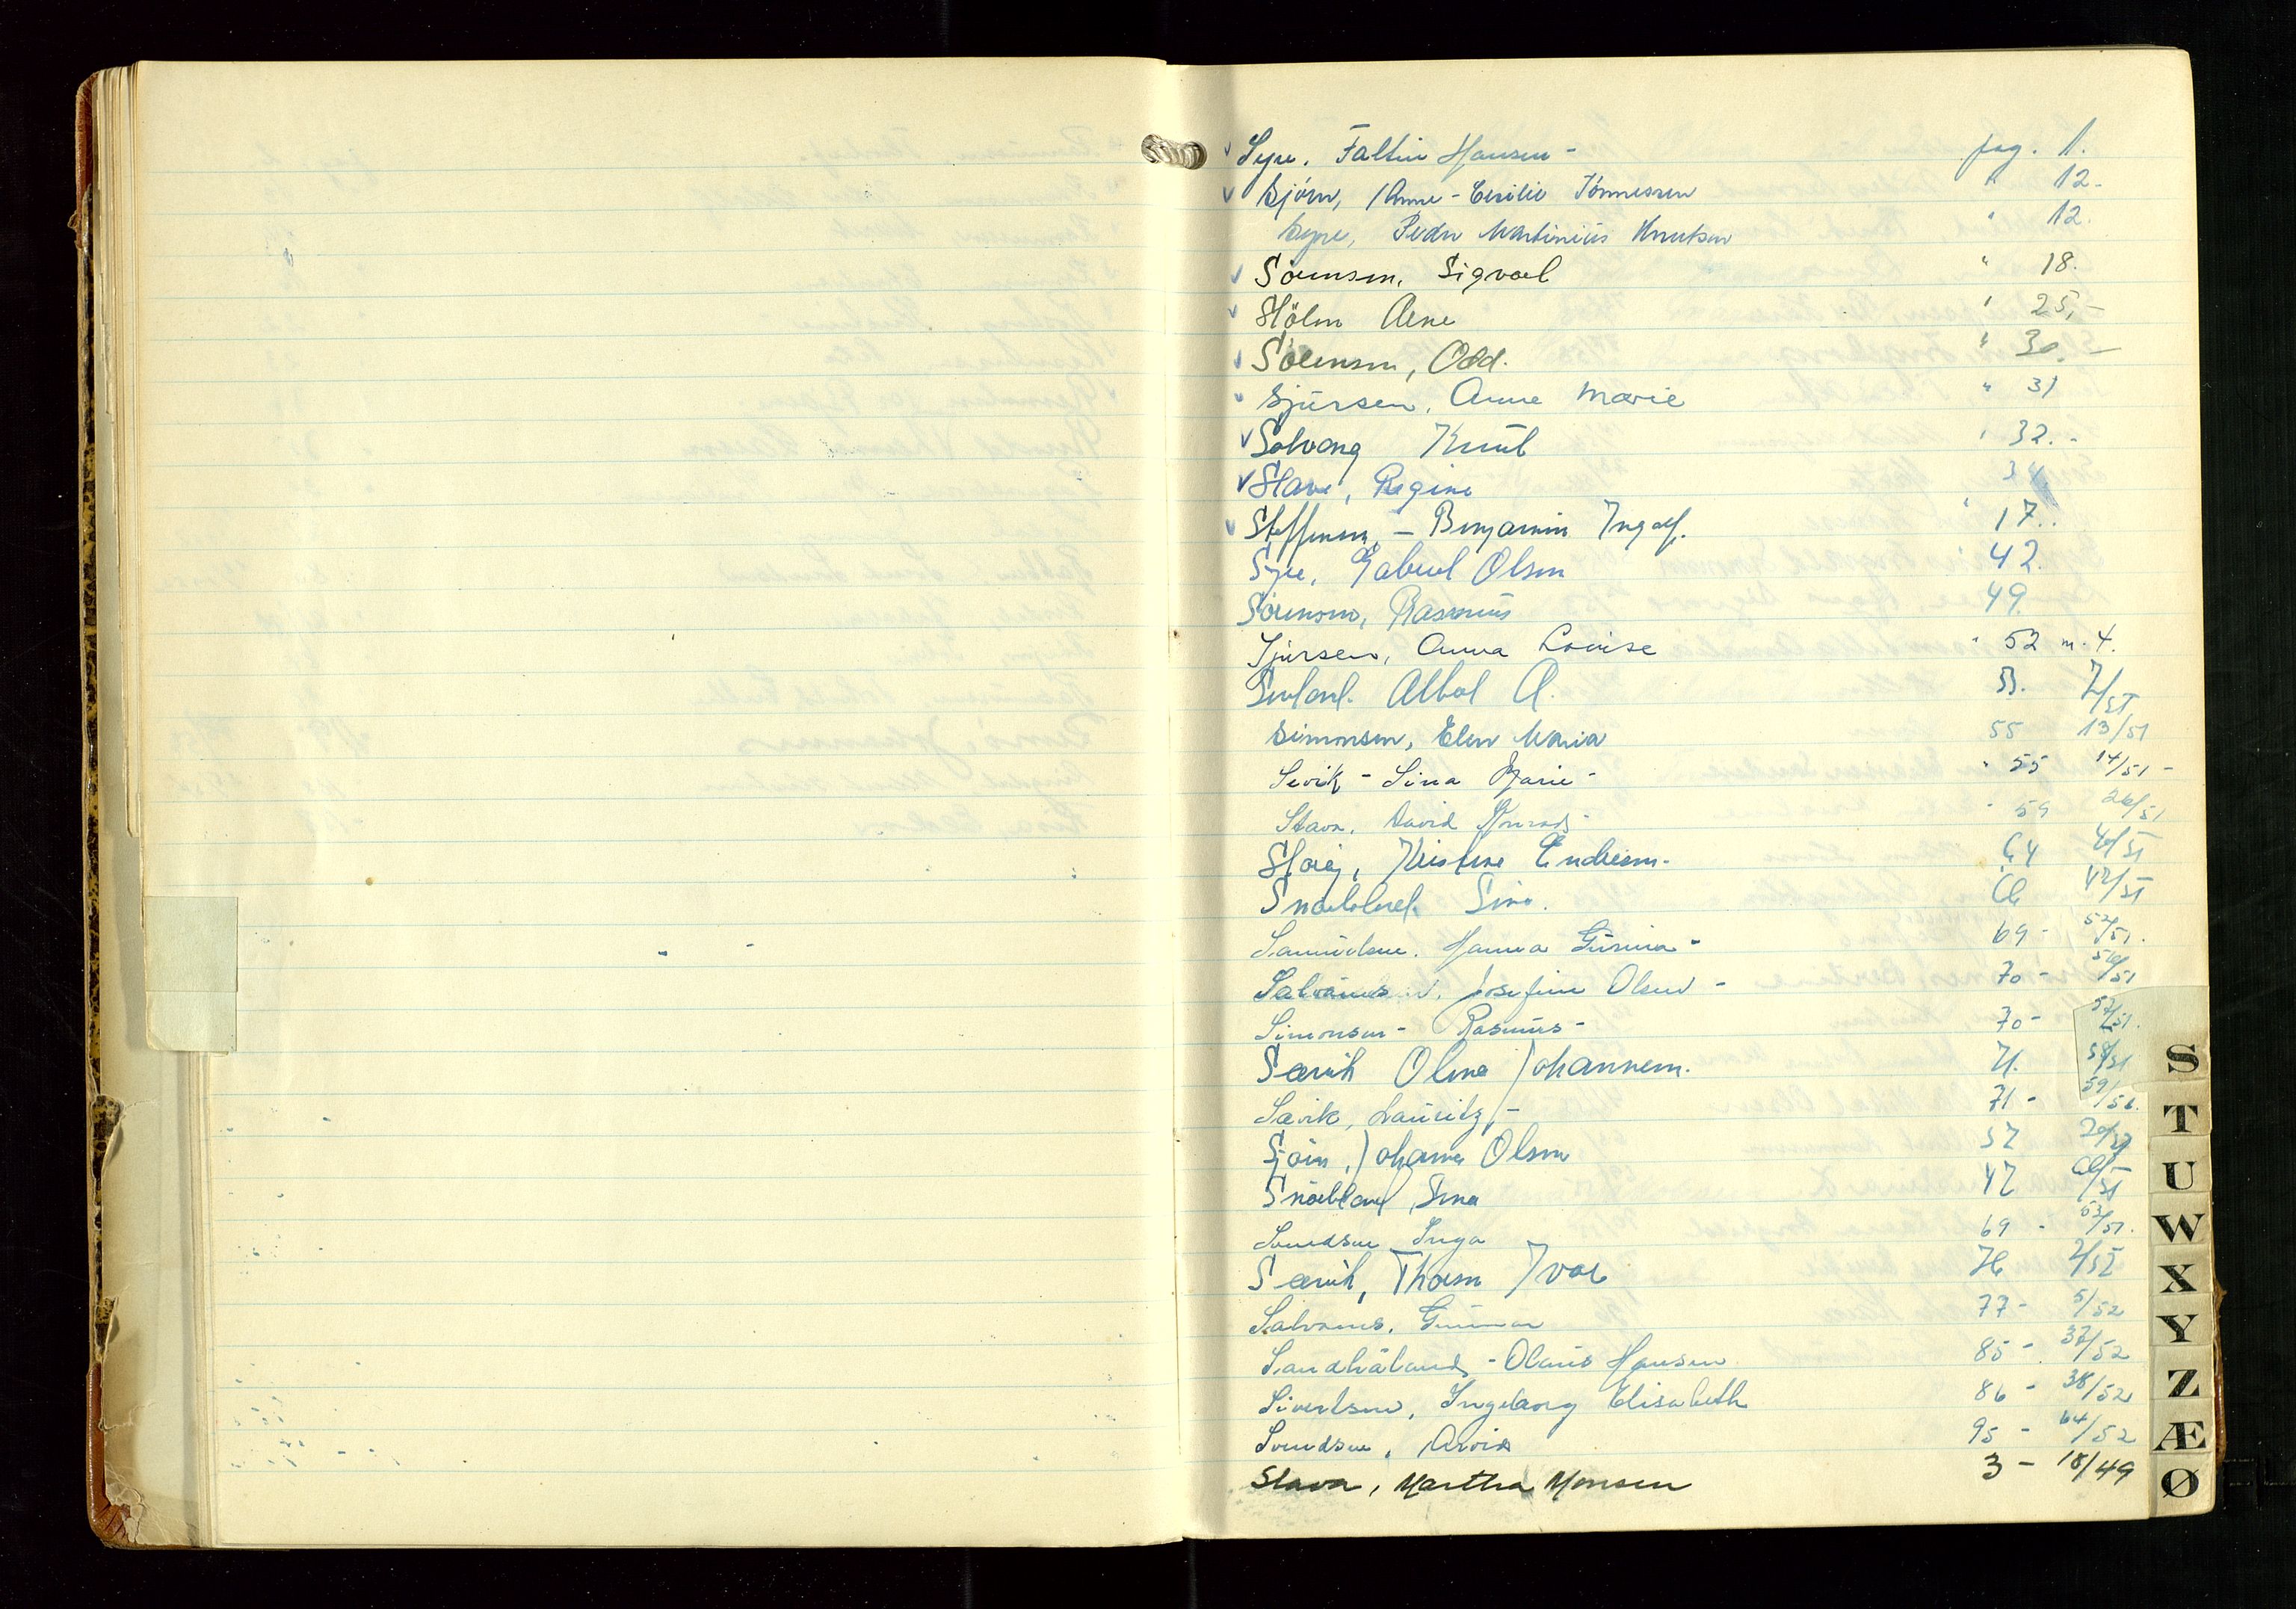 Syre. Faltin Hansen - pag. 1.
Sjöen, Anne-Cecilie Tönnessen " 12.
Syre, Peder Martinius Knutsen " 12.
Sörensen, Sigvael " 18.
Stölen Arne " 25,-
Sörensen, Odd. " 30.-
Sjursen, Anna Marie " 31
Solvang Knut " 32.-
Stave, Regine 34
Steffensen, - Benjamin Ingolf. " 17..
Syre, Gabriel Olsen 42.
Sörensen, Rasmus 49.
Sjursen, Anna Lovise " 52 m. 4.
Albert A. 53. 7/51
Simonsen, Elen Maria 55 13/51
Sevik - Sina Marie - " 55 14/51 -
Stava, David Konrad - " 59 26/51
Kristine Endresen. 64 40/51
Snöebbrek Sina. 66 42/51
Samuelsen. Hanna Gurina - 69 - 52/51.
Salvanes. Josefine Olsen - 70 - 56/51
Simonsen - Rasmus - 70 - 57/51.
Sævik Oline Johannesen. 71. 58/51
Sævik, Lauritz - 71 - 59/51.
Sjöen, Johanna Olsen 57 20/51
Snöebbrek, Sina 47 66/51
Svendsen Inga 69 - 53/51.
Sævik, Thorsen Ivar 76 2/52
Salvanes. Gunnar 77 - 5/52
Sandhåland - Olaus Hansen 85 - 37/52
Sivertsen, Ingeborg Elisabeth 86 - 38/52
Svendsen, Arvid 95 - 64/52
Stava, Martha Monsen 3 - 18/49
S
T
U
W
X
Y
Z
Æ
Ø